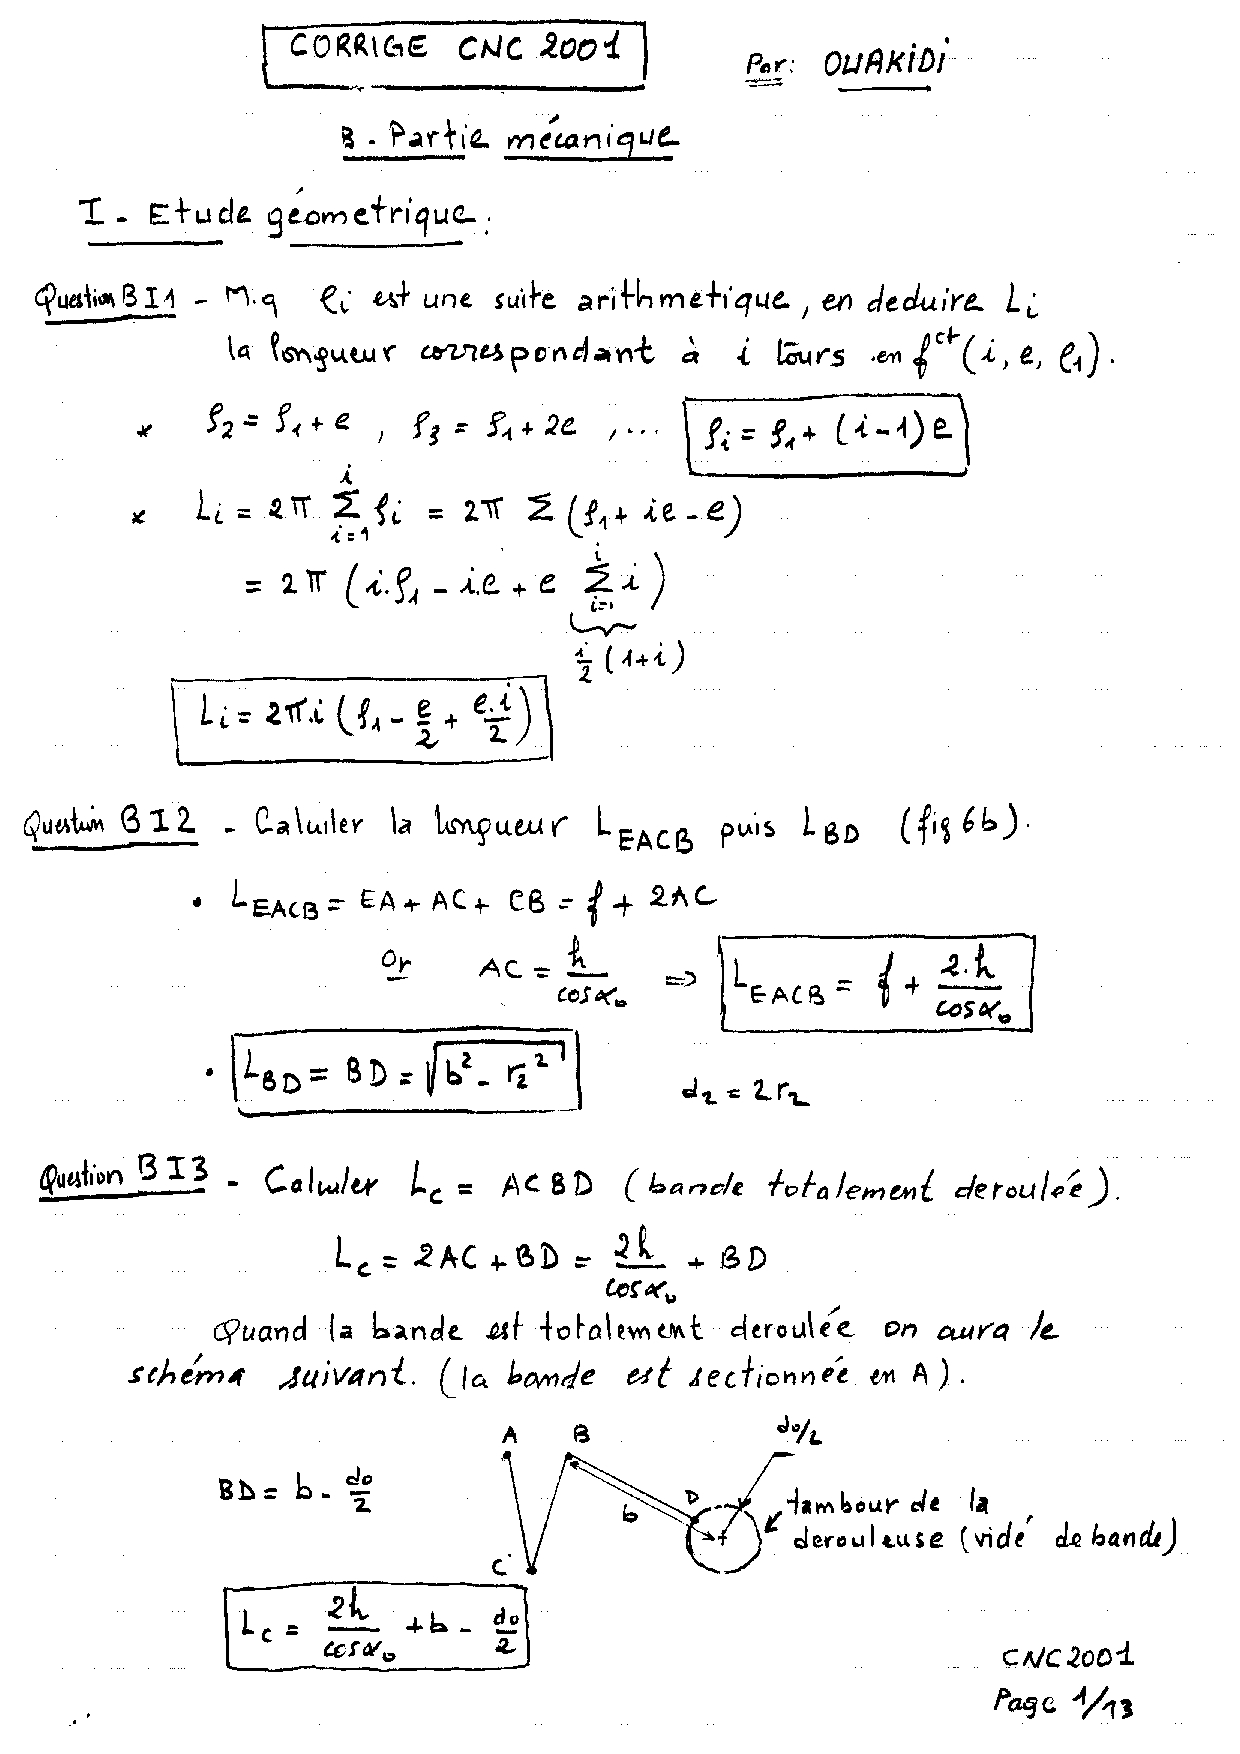 CORRIGE CNC 2001
Par: OUAKIDI
B - Partie mécanique
I - Etude géometrique.
Question B I1 - M.q ρi est une suite arithmetique, en deduire Li
la longueur correspondant à i tours en f^ct (i, e, ρ1).
* ρ2 = ρ1 + e , ρ3 = ρ1 + 2e , ... ρi = ρ1 + (i-1)e
* Li = 2π Σ_{i=1}^{i} ρi = 2π Σ (ρ1 + ie - e)
= 2π (i.ρ1 - i.e + e Σ_{i=1}^{i} i)
i/2 (1+i)
Li = 2π.i (ρ1 - e/2 + e.i/2)
Question B I2 - Calculer la longueur L_EACB puis L_BD (fig 6b).
• L_EACB = EA + AC + CB = f + 2AC
Or AC = h/cosα0 => L_EACB = f + 2.h/cosα0
• L_BD = BD = √(b² - r2²) d2 = 2r2
Question B I3 - Calculer Lc = ACBD (bande totalement deroulée).
Lc = 2AC + BD = 2h/cosα0 + BD
Quand la bande est totalement deroulée on aura le
schéma suivant. (la bande est sectionnée en A).
A B d0/2
BD = b - d0/2
D
b
tambour de la
derouleuse (vidé de bande)
C
Lc = 2h/cosα0 + b - d0/2
CNC 2001
Page 1/13